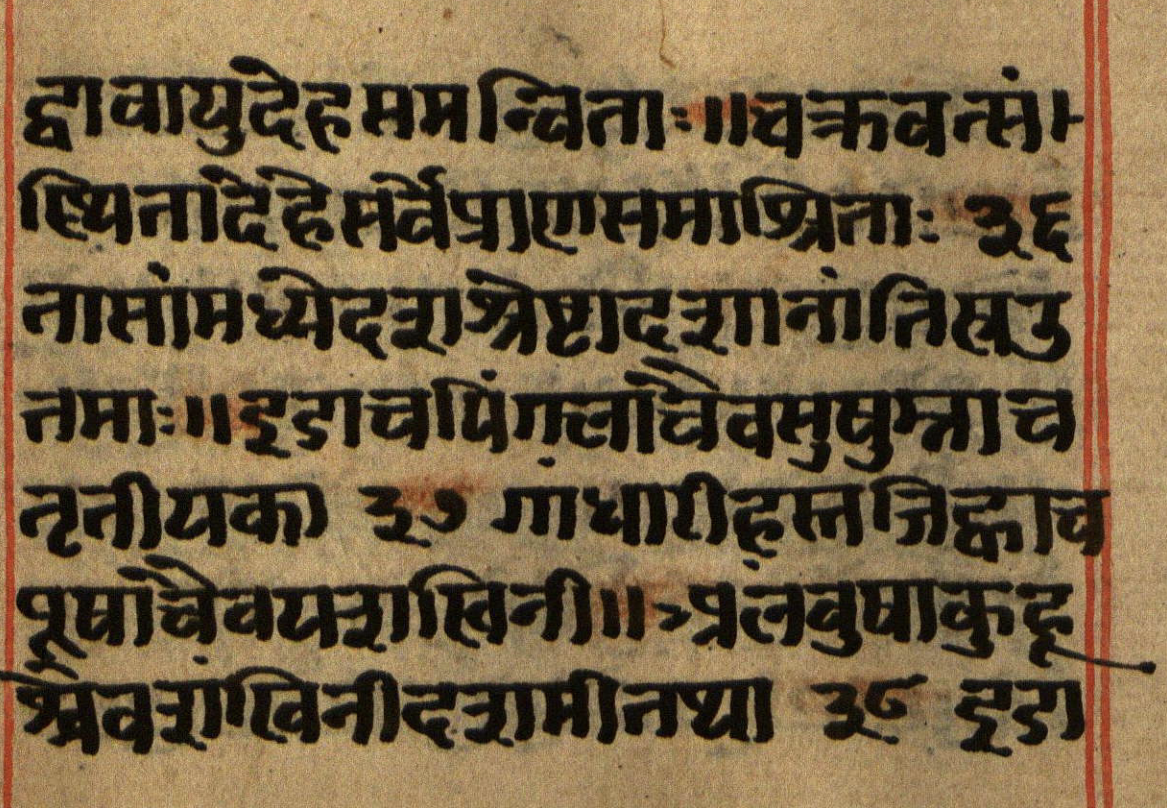 द्वावायुदेहसमन्विताः॥चक्रवत्सं।
स्थितादेहेसर्वेप्राणसमाश्रिताः ३६
तासांमध्येदशश्रेष्टादशानांतिस्रउ
त्तमाः॥इडाचपिंगलाचैवसुषुम्नाच
तृतीयका ३७ गांधारीहस्तजिह्वाच
पूषाचैवयशस्विनी॥अलंबुषाकुहू
श्चैवशंखिनीदशमीतथा ३८ इडा